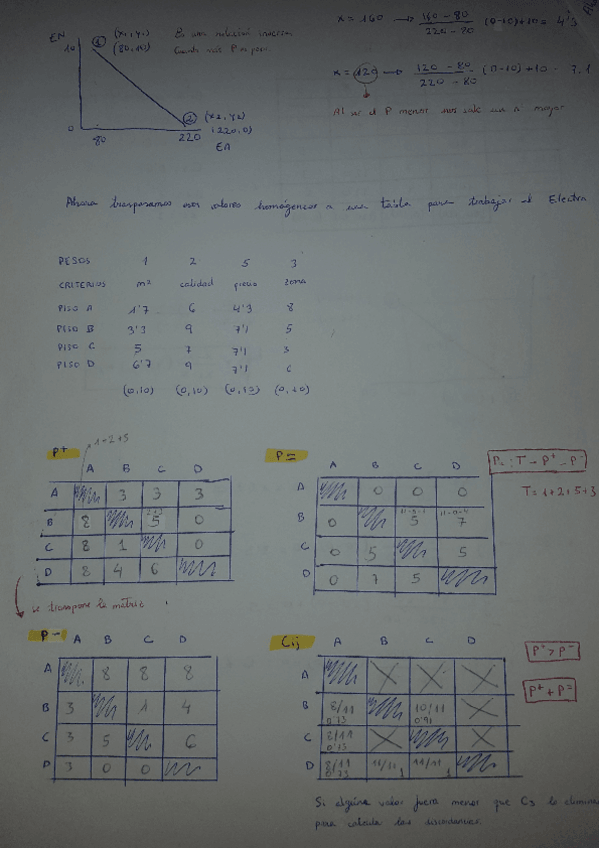 EN
10
① (x₁, y₁)
(80, 10)
Es una relación inversa
Cuanto más P es peor.
0
80
② (x₂, y₂)
220 (220, 0)
EA
x = 160 → 160 - 80 / 220 - 80 (0-10)+10 = 4'3
x = 120 → 120 - 80 / 220 - 80 (0-10) + 10 = 7,1
Al ser el P menor nos sale un n mayor
Ahora trasponemos esos valores homógeneos a una tabla para trabajar el Electra
PESOS 1 2 5 3
CRITERIOS m² calidad precio zona
PISO A 1'7 6 4'3 8
PISO B 3'3 9 7'1 5
PISO C 5 7 7'1 3
PISO D 6'7 9 7'1 6
(0,10) (0,10) (0,10) (0,10)
P+ 1+2+5
A B C D
A 3 3 3
B 8 5 0
C 8 1 0
D 8 4 6
se transpone la matriz
P=
A B C D
A 0 0 0
B 0 5 7
C 0 5 5
D 0 7 5
P= : T - P+ - P-
T = 1+2+5+3
P- A B C D
A 8 8 8
B 3 1 4
C 3 5 6
D 3 0 0
Cij A B C D
A X X X
B 8/11 0'73 10/11 0'91 X
C 8/11 0'73 X X
D 8/11 0'73 11/11 1 11/11 1
P+ > P-
P+ + P=
Si alguna valor fuera menor que C3 lo elimina
para calcular las discordancias.